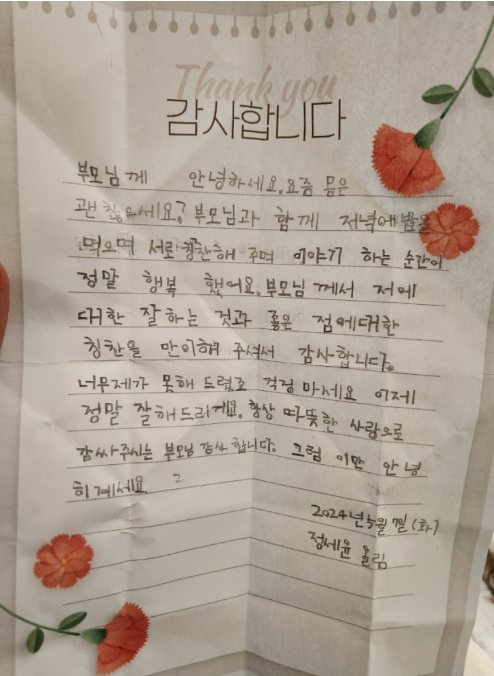 Thank you
감사합니다
부모님께 안녕하세요. 요즘 몸은
괜찮으세요? 부모님과 함께 저녁에 밥을
먹으며 서로 칭찬해 주며 이야기 하는 순간이
정말 행복 했어요. 부모님 께서 저에
대한 잘하는 것과 좋은 점에대한
칭찬을 만이해 주셔서 감사합니다.
너무제가 못해 드렸고 걱정 마세요 이제
정말 잘해드리게요. 항상 따뜻한 사랑으로
감싸주시는 부모님 감사 합니다. 그럼 이만 안녕
히계세요
2024년 5월 7일 (화)
정세윤 올림